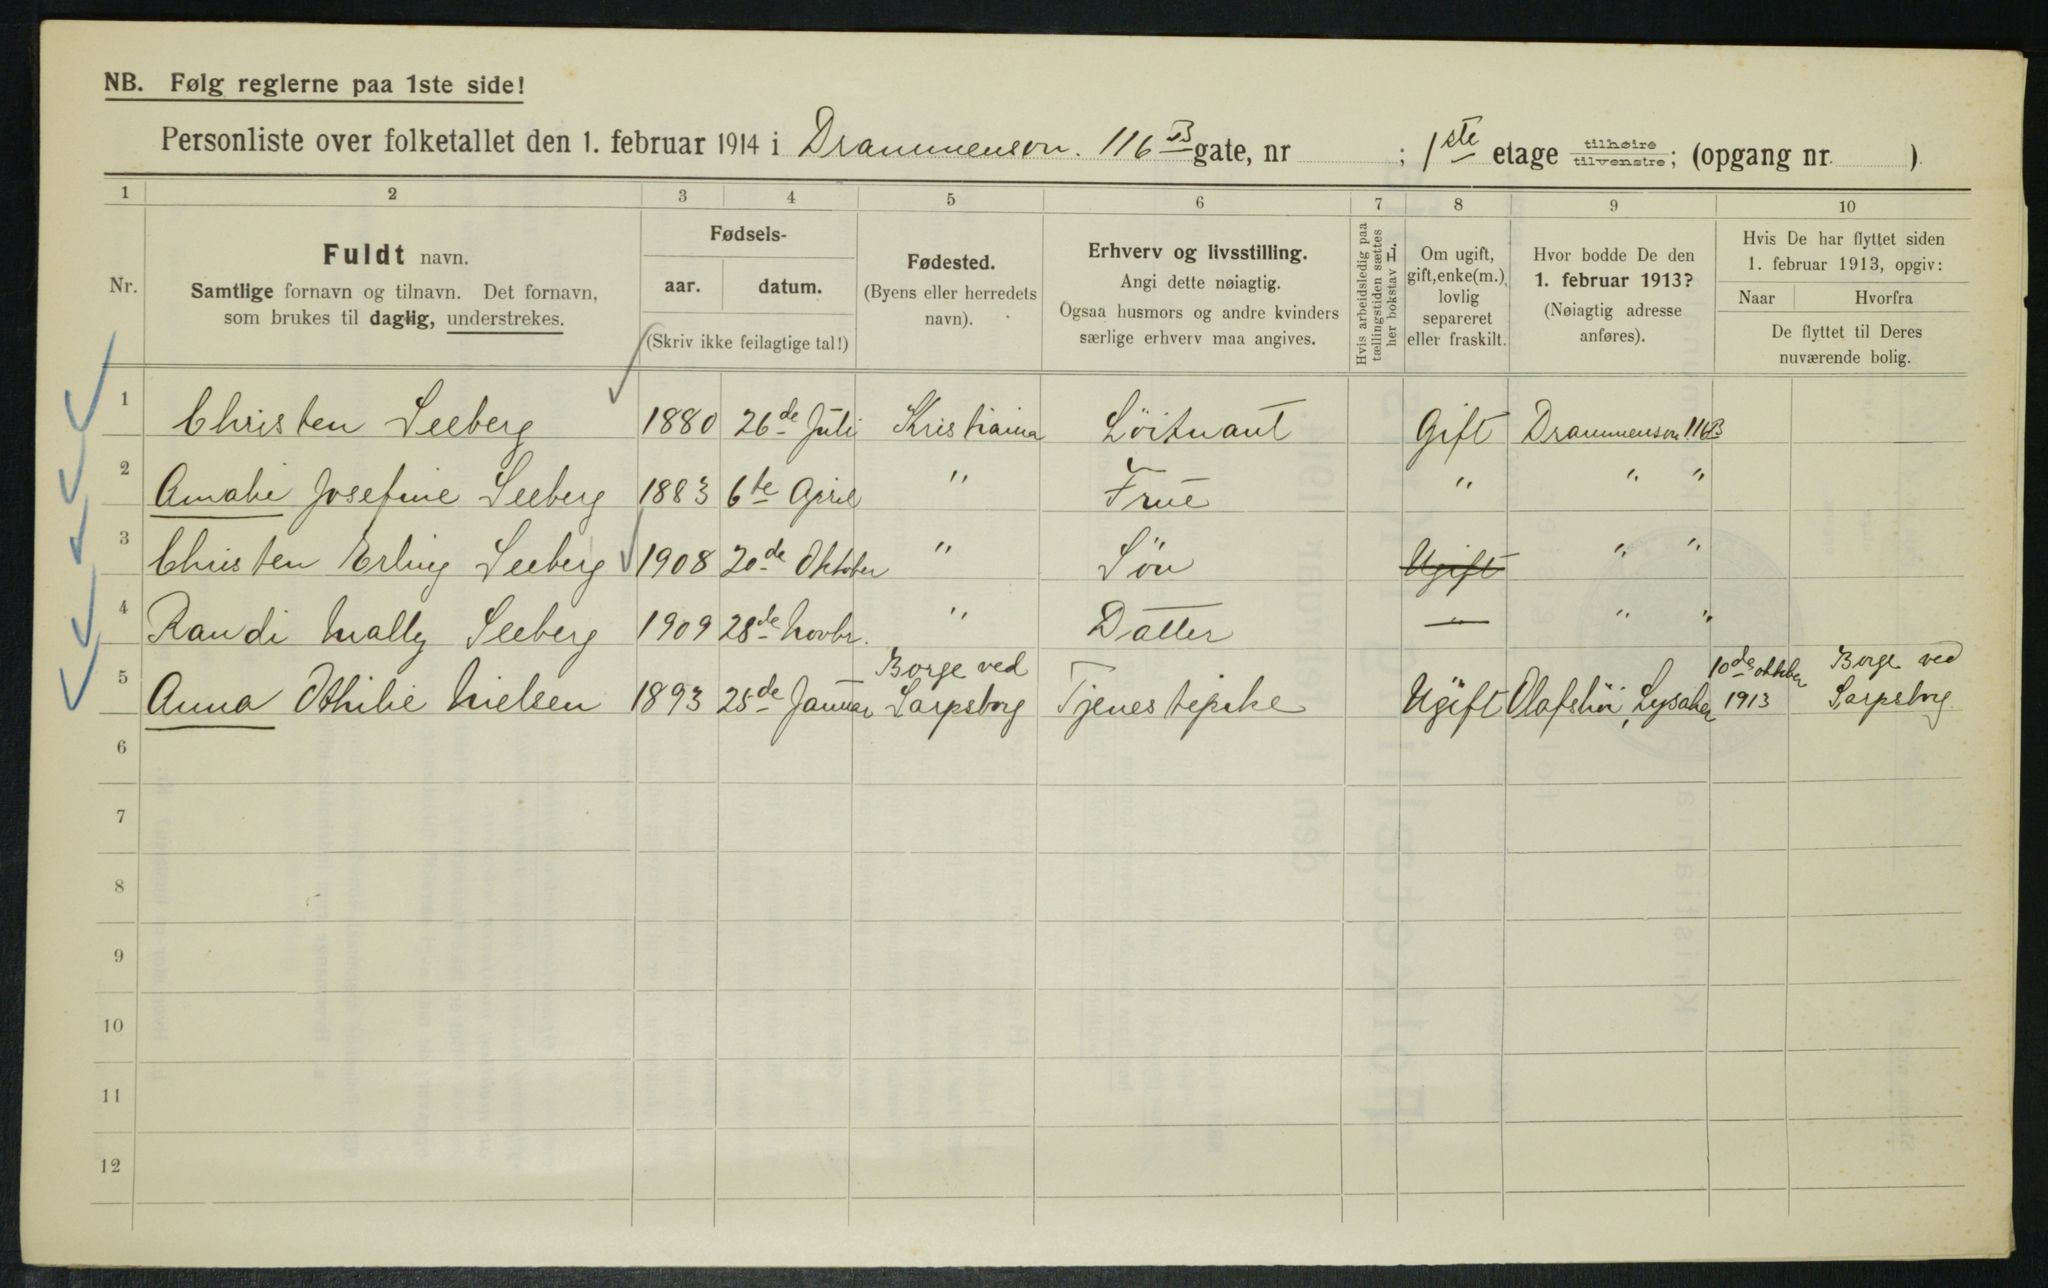 NB. Følg reglerne paa 1ste side!
Personliste over folketallet den 1. februar 1914 i Drammenson. 116 B gate, nr ; 1ste etage tilhøire tilvenstre; (opgang nr )
1 2 3 4 5 6 7 8 9 10
Nr.
Fuldt navn.
Samtlige fornavn og tilnavn. Det fornavn,
som brukes til daglig, understrekes.
Fødsels-
aar. datum.
(Skriv ikke feilagtige tal!)
Fødested.
(Byens eller herredets
navn).
Erhverv og livsstilling.
Angi dette nøiagtig.
Ogsaa husmors og andre kvinders
særlige erhverv maa angives.
Hvis arbeidsledig paa
tællingstiden sættes
her bokstav L.
Om ugift,
gift, enke(m.),
lovlig
separeret
eller fraskilt.
Hvor bodde De den
1. februar 1913?
(Nøiagtig adresse
anføres).
Hvis De har flyttet siden
1. februar 1913, opgiv:
Naar Hvorfra
De flyttet til Deres
nuværende bolig.
1 Christen Seeberg 1880 26de Juli Kristiania Löitnant Gift Drammenson 116B
2 Amalie Josefine Seeberg 1883 6te April " Frue " " "
3 Christen Erling Seeberg 1908 20de Oktober " Sön Ugift " "
4 Randi Wally Seeberg 1909 28de Novbr. " Datter — " "
5 Anna Othilie Nielsen 1893 25de Januar Borge ved Sarpsborg Tjenestepike Ugift Olafshöi, Lysaker 10de oktober 1913 Borge ved Sarpsborg
6
7
8
9
10
11
12